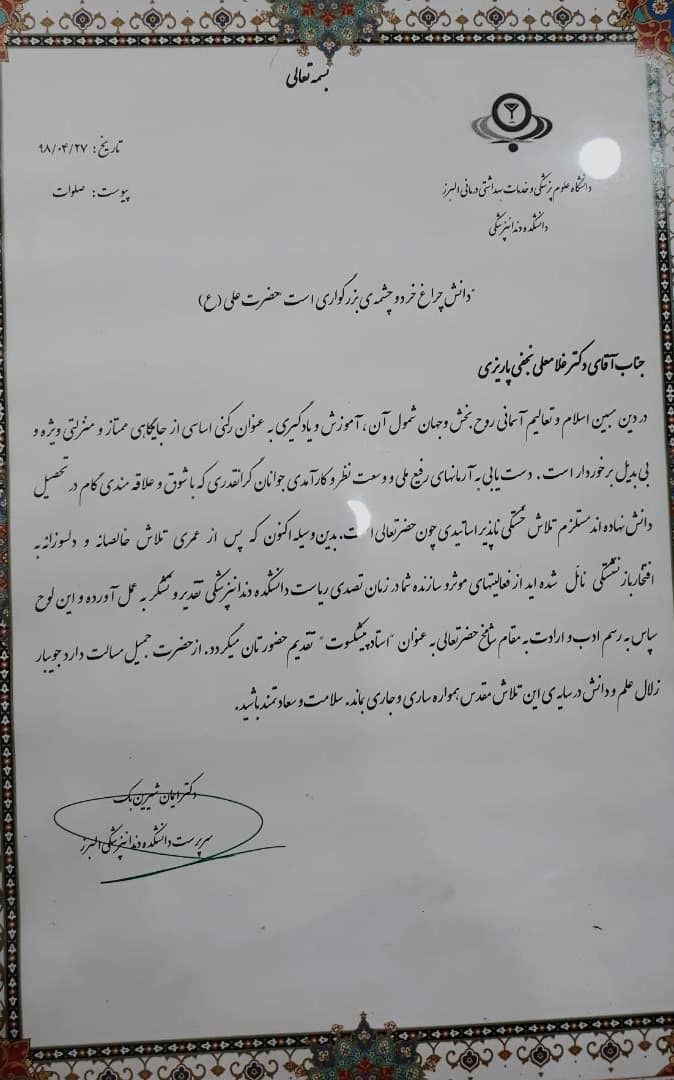 بسمه تعالی
تاریخ: ۹۸/۰۴/۲۷
پیوست: صلوات
دانشگاه علوم پزشکی و خدمات بهداشتی درمانی البرز
دانشکده دندانپزشکی
"دانش چراغ خرد و چشمه ی بزرگواری است حضرت علی (ع)
جناب آقای دکتر غلامعلی نجفی پاریزی
در دین مبین اسلام و تعالیم آسمانی روح بخش وجهان شمول آن، آموزش و یادگیری به عنوان رکنی اساسی از جایگاهی ممتاز و منزلتی ویژه و
بی بدیل برخوردار است. دست یابی به آرمانهای رفیع ملی و وسعت نظر و کارآمدی جوانان گرانقدری که با شوق و علاقه مندی گام در تحصیل
دانش نهاده اند مستلزم تلاش خستگی ناپذیر اساتیدی چون حضرتعالی است. بدین وسیله اکنون که پس از عمری تلاش خالصانه و دلسوزانه به
افتخار بازنشستگی نائل شده اید از فعالیتهای موثر و سازنده شما در زمان تصدی ریاست دانشکده دندانپزشکی تقدیر و تشکر به عمل آورده و این لوح
سپاس به رسم ادب و ارادت به مقام شامخ حضرتعالی به عنوان "استاد پیشکسوت" تقدیم حضورتان میگردد. از حضرت جمیل مسالت دارد جویبار
زلال علم و دانش در سایه ی این تلاش مقدس همواره ساری و جاری بماند. سلامت و سعادتمند باشید.
دکتر ایمان شیرین بک
سرپرست دانشکده دندانپزشکی البرز